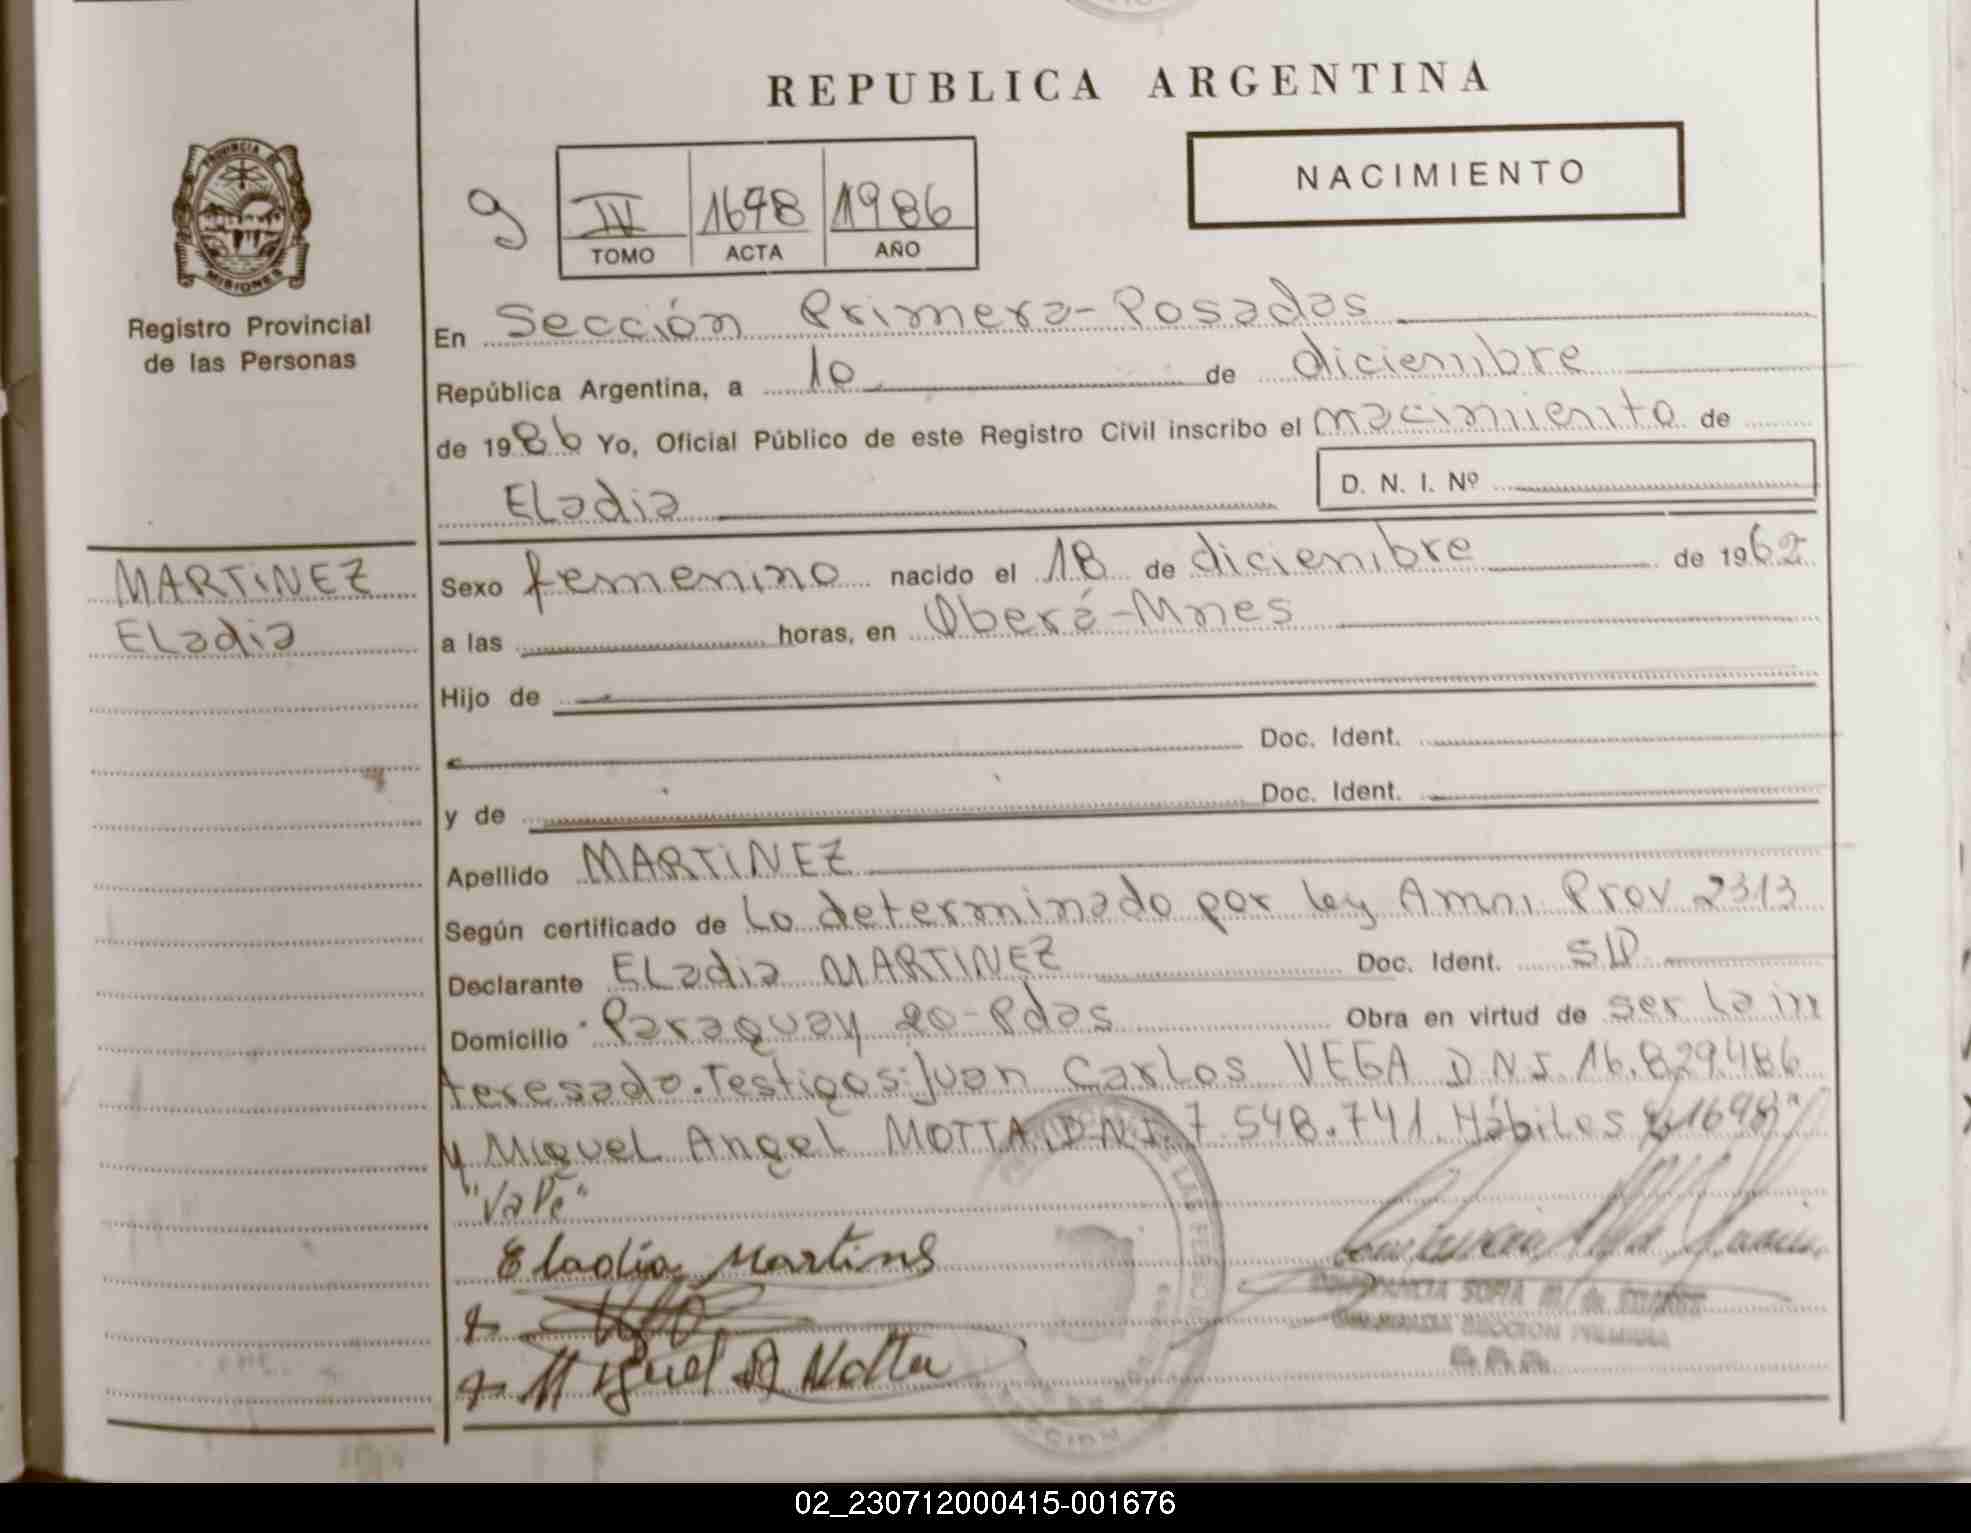 REPUBLICA ARGENTINA
PROVINCIA DE
MISIONES
Registro Provincial
de las Personas
NACIMIENTO
9 IV 1698 1986
TOMO ACTA AÑO
En Sección Primera-Posadas
República Argentina, a 10 de diciembre
de 1986 Yo, Oficial Público de este Registro Civil inscribo el nacimiento de
Eladia D. N. I. Nº
MARTINEZ
Eladia
Sexo femenino nacido el 18 de diciembre de 1962
a las horas, en Oberá-Mnes
Hijo de
Doc. Ident.
y de Doc. Ident.
Apellido MARTINEZ
Según certificado de Lo determinado por ley Amni Prov 2313
Declarante Eladia MARTINEZ Doc. Ident. S/D
Domicilio Paraguay 20-Pdas Obra en virtud de ser la in
teresada. Testigos: Juan Carlos VEGA D.N.I. 16.829.486
y Miguel Angel MOTTA. D.N.I. 7.548.741. Hábiles "1698"
"Vale"
Eladia Martins
Miguel A Motta
SECCION PRIMERA
02_230712000415-001676